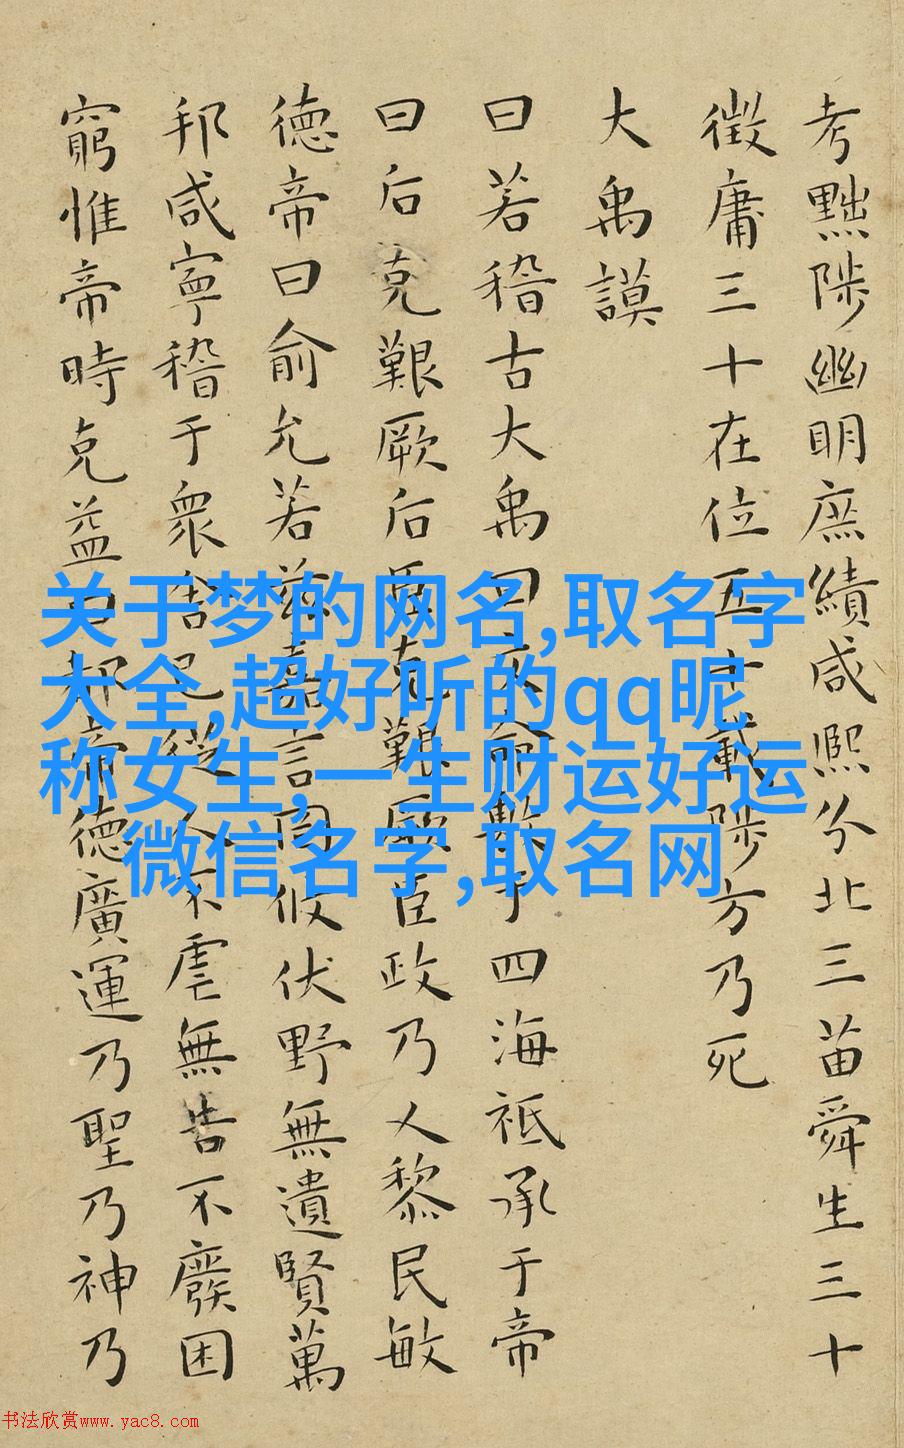 考黜陟幽明庶績咸熙分北三苗舜生三十
徵庸三十在位五十載陟方乃死
大禹謨
曰若稽古大禹曰文命敷于四海祗承于帝
曰后克艱厥后臣克艱厥臣政乃乂黎民敏
德帝曰俞允若茲嘉言罔攸伏野無遺賢萬
邦咸寧稽于衆舍己從人不虐無告不廢困
窮惟帝時克益曰都帝德廣運乃聖乃神乃
关于梦的网名,取名字
大全,超好听的qq昵
称女生,一生财运好运
微信名字,取名网
书法欣赏www.yac8.com